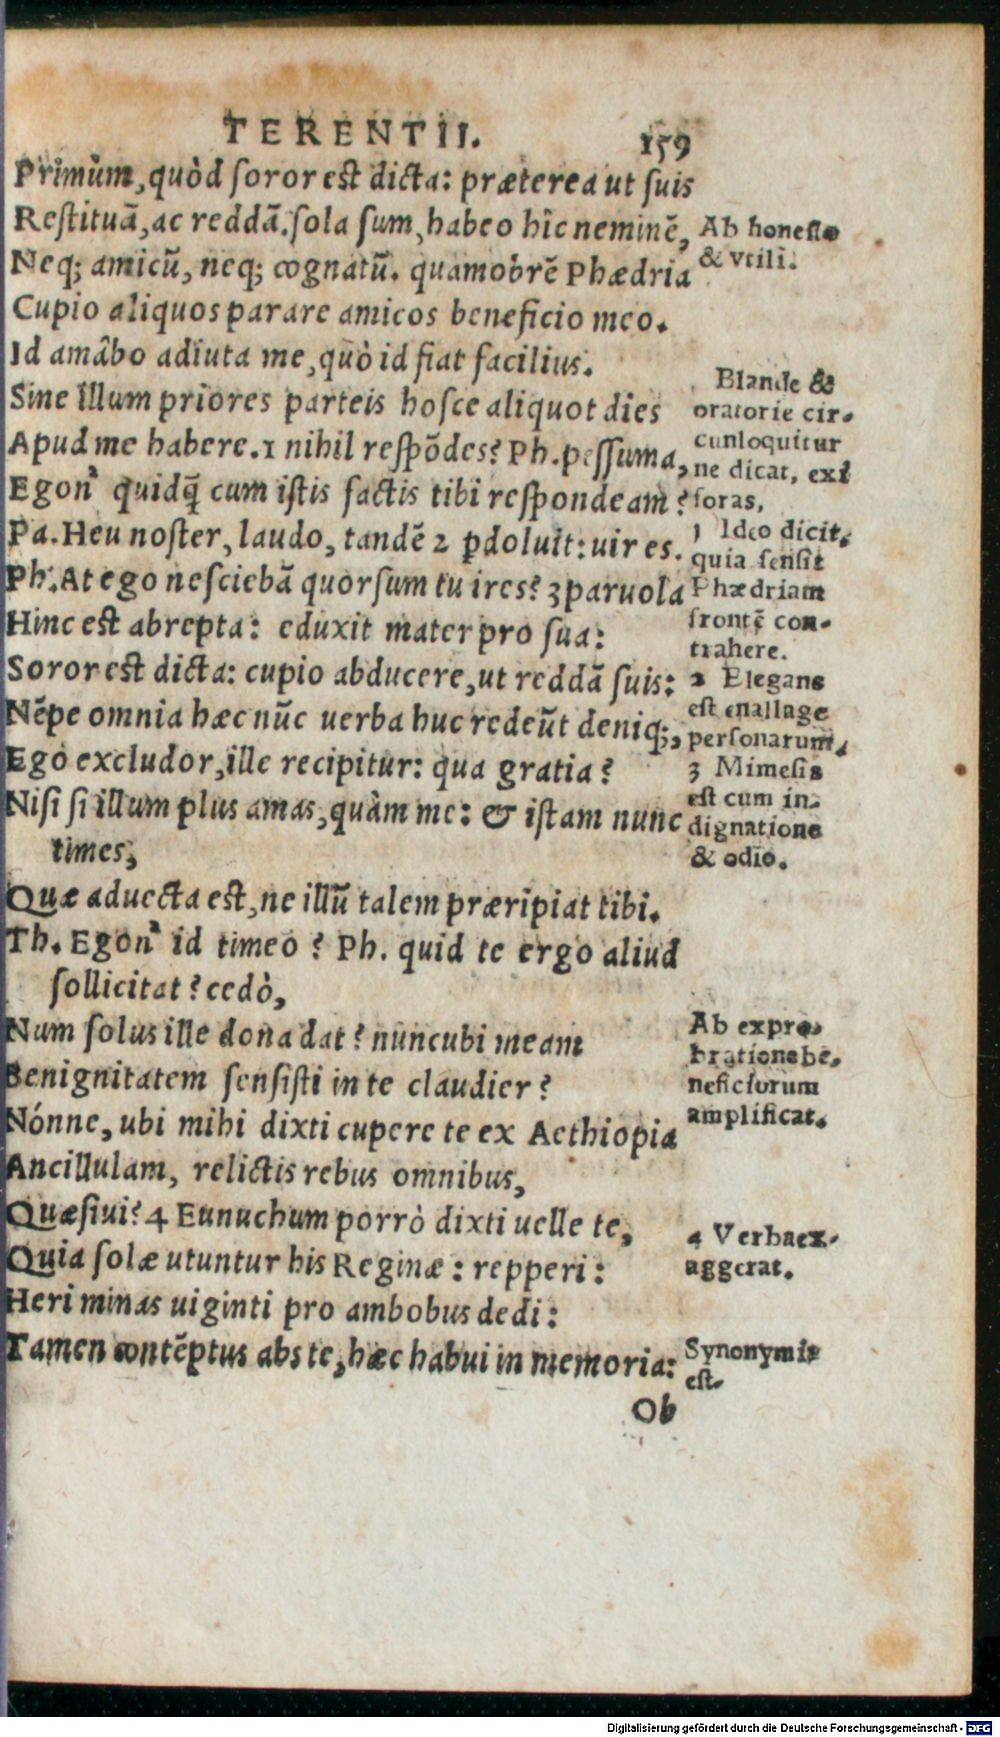 TERENTII. 159
Primùm, quòd soror est dicta: præterea ut suis
Restituā, ac reddā. sola sum, habeo hîc neminē,
Neq; amicū, neq; cognatū. quamobrē Phædria
Cupio aliquos parare amicos beneficio meo.
Id amâbo adiuta me, quò id fiat facilius.
Sine illum priores parteis hosce aliquot dies
Apud me habere. 1 nihil respōdes? Ph. pessuma,
Egon' quidq̃ cum istis factis tibi respondeam?
Pa. Heu noster, laudo, tandē 2 ꝑdoluit: uir es.
Ph. At ego nesciebā quorsum tu ires? 3 paruola
Hinc est abrepta: eduxit mater pro sua:
Soror est dicta: cupio abducere, ut reddā suis:
Nēpe omnia hæc nūc uerba huc redeūt deniq;,
Ego excludor, ille recipitur: qua gratia?
Nisi si illum plus amas, quàm me: & istam nunc
times,
Quæ aduecta est, ne illū talem præripiat tibi.
Th. Egon' id timeo? Ph. quid te ergo aliud
sollicitat? cedò,
Num solus ille dona dat? nuncubi meam
Benignitatem sensisti in te claudier?
Nónne, ubi mihi dixti cupere te ex Aethiopia
Ancillulam, relictis rebus omnibus,
Quæsiui? 4 Eunuchum porrò dixti uelle te,
Quia solæ utuntur his Reginæ: repperi:
Heri minas uiginti pro ambobus dedi:
Tamen contēptus abs te, hæc habui in memoria:
Ob
Ab honesto
& vtili.
Blande &
oratorie cir-
cunloquitur
ne dicat, exi
foras.
1 Ideo dicit,
quia sensit
Phædriam
frontē con-
trahere.
2 Elegans
est enallage
personarum.
3 Mimesis
est cum in-
dignatione
& odio.
Ab expro-
bratione be-
neficiorum
amplificat.
4 Verba ex-
aggerat.
Synonymis
est.
Digitalisierung gefördert durch die Deutsche Forschungsgemeinschaft - DFG